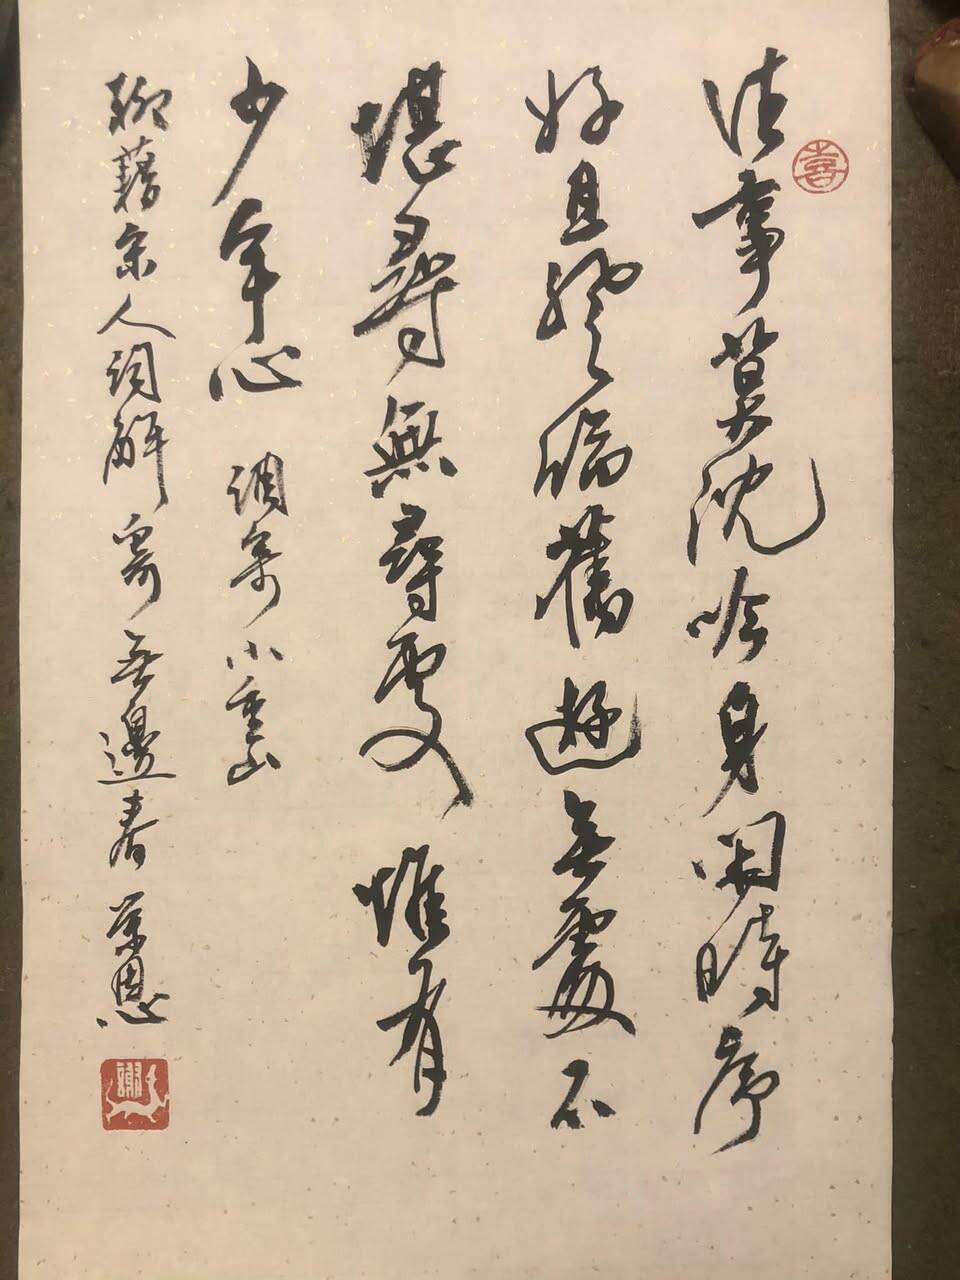 喜
往事莫沈吟身閑時序
好且登臨舊遊无處不
堪尋無尋處惟有
少年心 調寄小重山
聊藉宋人詞解寄无邊春 恩
謝